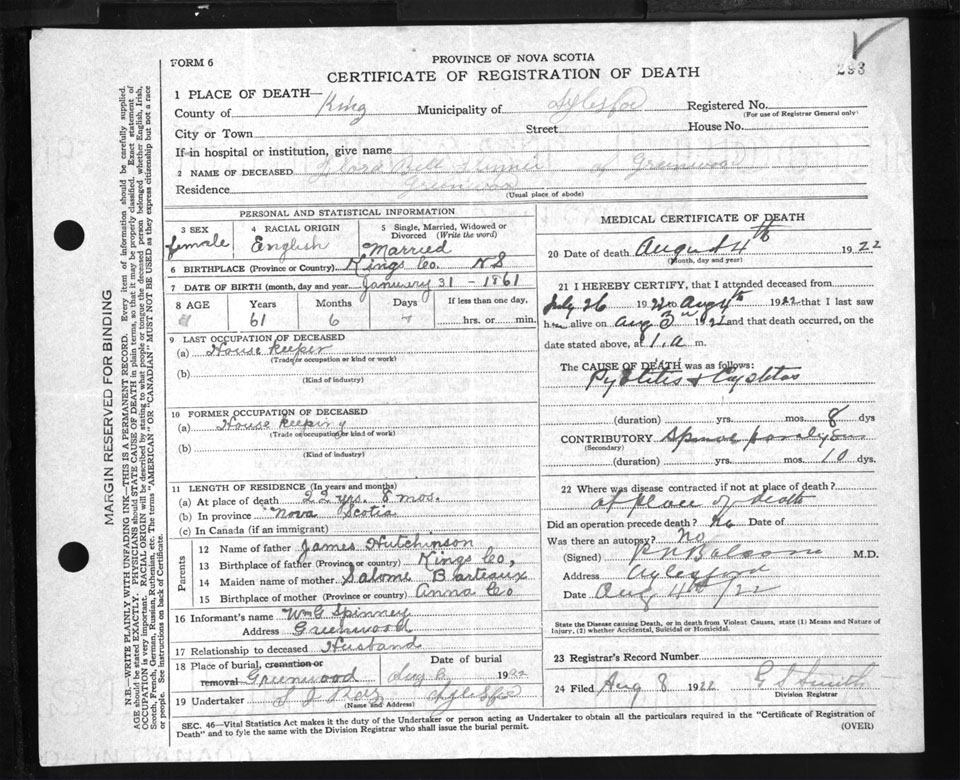 FORM 6
PROVINCE OF NOVA SCOTIA
CERTIFICATE OF REGISTRATION OF DEATH
293
1 PLACE OF DEATH—
County of King Municipality of Registered No.
(For use of Registrar General only)
City or Town Street House No.
If in hospital or institution, give name
2 NAME OF DECEASED Bell of Greenwood
Residence Greenwood
(Usual place of abode)
PERSONAL AND STATISTICAL INFORMATION
3 SEX 4 RACIAL ORIGIN 5 Single, Married, Widowed or Divorced (Write the word)
female English Married
6 BIRTHPLACE (Province or Country) Kings Co. N S
7 DATE OF BIRTH (month, day and year) January 31 - 1861
8 AGE Years Months Days If less than one day,
61 6 hrs. or min.
9 LAST OCCUPATION OF DECEASED
(a) House keeper
(Trade or occupation or kind or work)
(b)
(Kind of industry)
10 FORMER OCCUPATION OF DECEASED
(a) House keeping
(Trade or occupation or kind of work)
(b)
(Kind of industry)
11 LENGTH OF RESIDENCE (In years and months)
(a) At place of death 22 yrs. 8 mos.
(b) In province Nova Scotia
(c) In Canada (if an immigrant)
Parents
12 Name of father James Hutchinson
13 Birthplace of father (Province or country) Kings Co,
14 Maiden name of mother Salome Barteaux
15 Birthplace of mother (Province or country) Anna Co
16 Informant's name Wm C Spinney
Address Greenwood
17 Relationship to deceased Husband
18 Place of burial, cremation or removal Greenwood Date of burial 1922
19 Undertaker
(Name and Address)
MEDICAL CERTIFICATE OF DEATH
20 Date of death August 4th 1922
(Month, day and year)
21 I HEREBY CERTIFY, that I attended deceased from
July 26 192 to Aug 4th 1922 that I last saw
h alive on Aug 3rd 192 and that death occurred, on
date stated above, at 1. a m.
The CAUSE OF DEATH was as follows:
(duration) yrs. mos. 8 dys
CONTRIBUTORY Spinal
(Secondary)
(duration) yrs. mos. 10 dys.
22 Where was disease contracted if not at place of death?
at place of death
Did an operation precede death? No Date of
Was there an autopsy? No
(Signed) M.D.
Address Aylesford
Date Aug 4th /22
State the Disease causing Death, or in death from Violent Causes, state (1) Means and Nature of
Injury, (2) whether Accidental, Suicidal or Homicidal.
23 Registrar's Record Number
24 Filed Aug 8 1922 G S Smith
Division Registrar
SEC. 46—Vital Statistics Act makes it the duty of the Undertaker or person acting as Undertaker to obtain all the particulars required in the "Certificate of Registration of
Death" and to fyle the same with the Division Registrar who shall issue the burial permit.
(OVER)
MARGIN RESERVED FOR BINDING
N.B.—WRITE PLAINLY WITH UNFADING INK—THIS IS A PERMANENT RECORD. Every item of information should be carefully supplied.
AGE should be stated EXACTLY. PHYSICIANS should STATE CAUSE OF DEATH in plain terms, so that it may be properly classified. Exact statement of
OCCUPATION is very important. RACIAL ORIGIN will be described by stating to what people or tongue the deceased person belonged whether English, Irish,
Scotch, French, German, Russian, Ruthenian, etc. The terms "AMERICAN" OR "CANADIAN" MUST NOT BE USED as they express citizenship but not a race
or people. See instructions on back of Certificate.